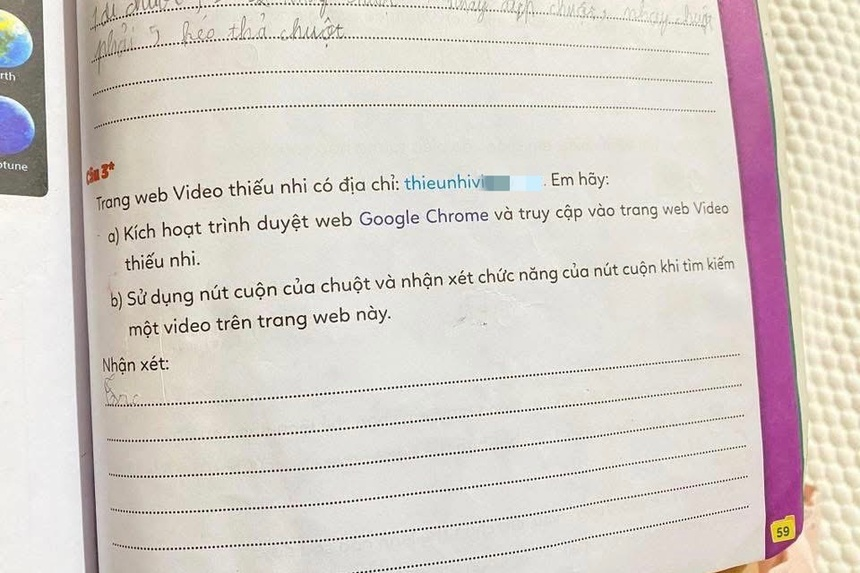 rth
ptune
phải, kéo thả chuột
Câu 3*
Trang web Video thiếu nhi có địa chỉ: thieunhivi . Em hãy:
a) Kích hoạt trình duyệt web Google Chrome và truy cập vào trang web Video
thiếu nhi.
b) Sử dụng nút cuộn của chuột và nhận xét chức năng của nút cuộn khi tìm kiếm
một video trên trang web này.
Nhận xét:
59